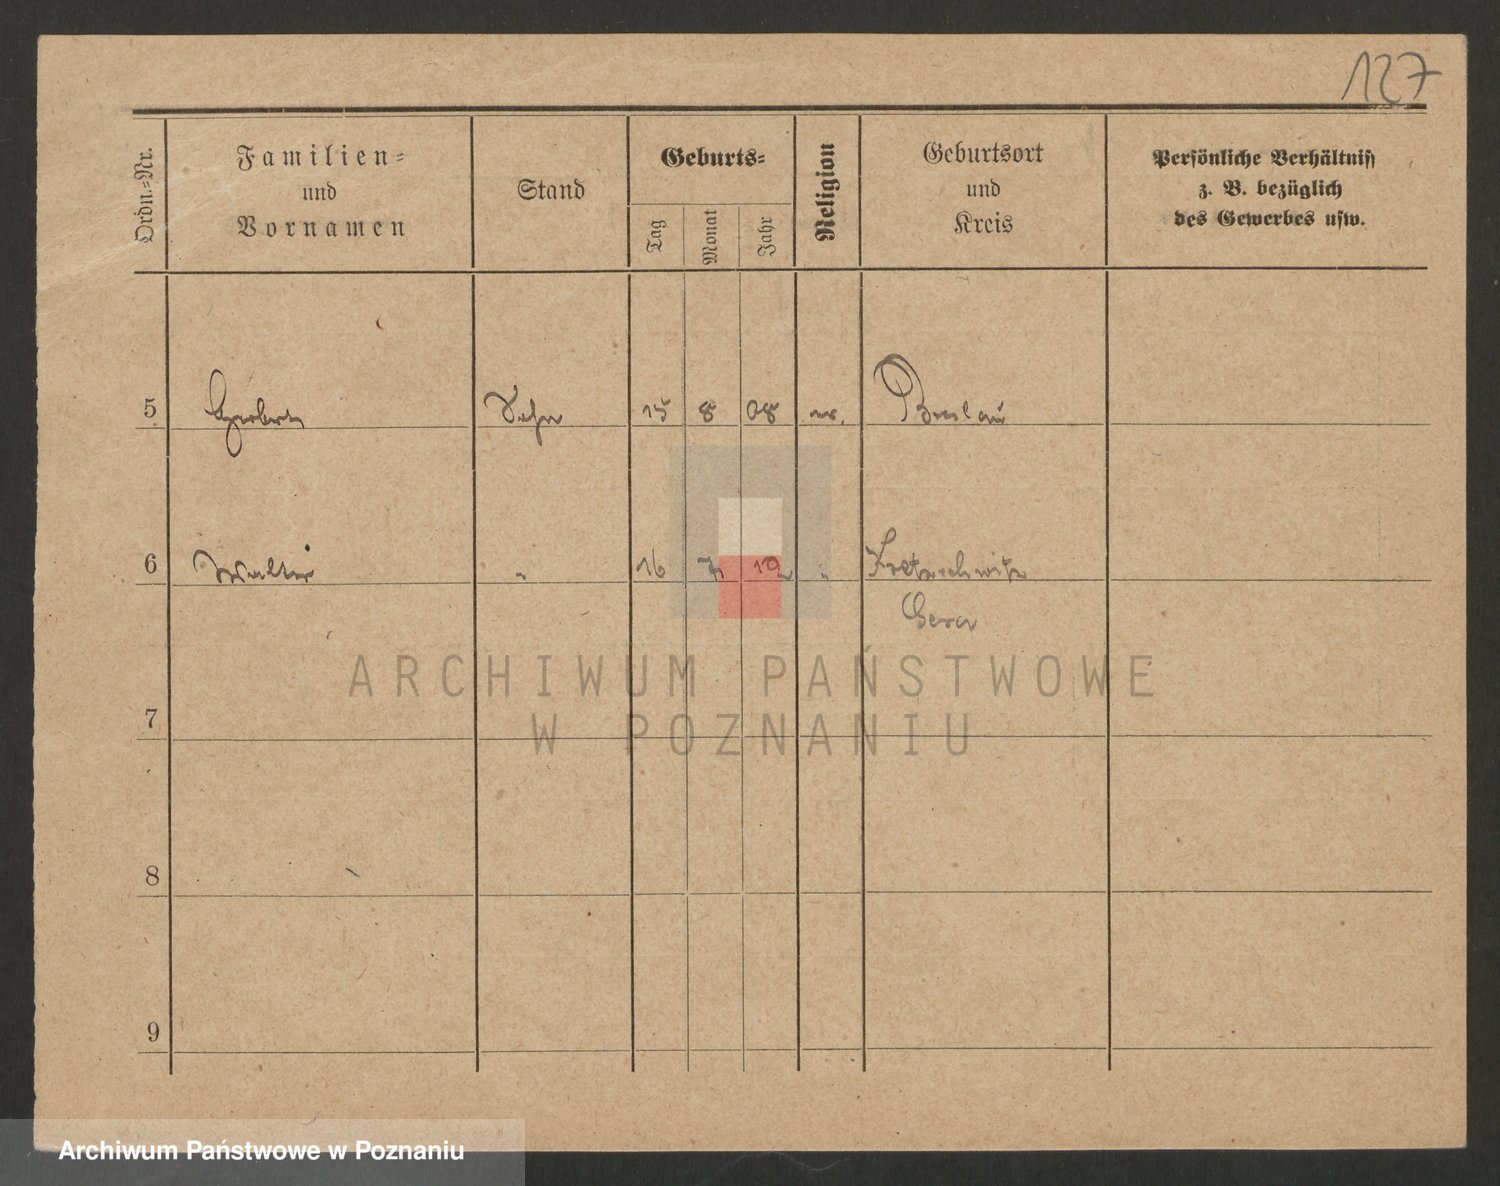 127
Ordn.=Nr.
Familien=
und
Vornamen
Stand
Geburts=
Tag
Monat
Jahr
Religion
Geburtsort
und
Kreis
Persönliche Verhältniss
z. B. bezüglich
des Gewerbes usw.
5 Herbert Sohn 15 8 08 Breslau
6 Walter " 16 7 "
Gera
7
8
9
ARCHIWUM PAŃSTWOWE
W POZNANIU
Archiwum Państwowe w Poznaniu